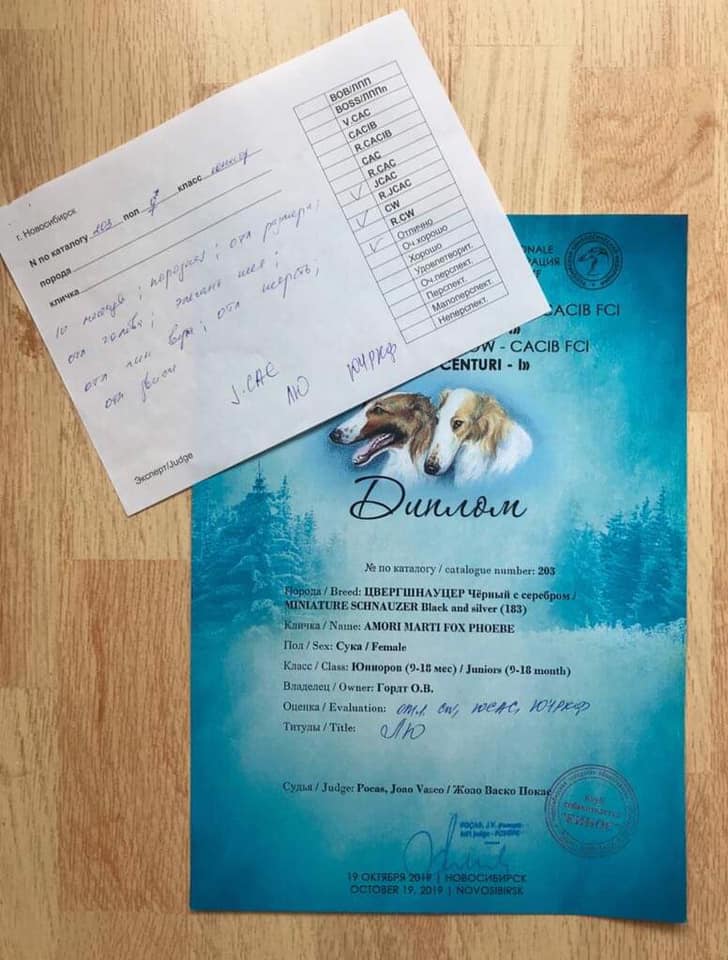 г. Новосибирск
N по каталогу 203 пол класс юниоры
порода
кличка
10 месяцев; породная; отл размера;
отл голова; элеганс шея;
отл лин верх; отл шерсть;
отл движ
J.CAC
ЛЮ ЮЧРКФ
Эксперт/Judge
BOB/ЛПП
BOSS/ЛППп
V.CAC
CACIB
R.CACIB
CAC
R.CAC
JCAC
R.JCAC
CW
R.CW
Отлично
Оч.хорошо
Хорошо
Удовлетворит.
Оч.перспект.
Перспект.
Малоперспект.
Неперспект.
ONALE
РАЦИЯ
CACIB FCI
I»
OW - CACIB FCI
CENTURI - I»
Диплом
№ по каталогу / catalogue number: 203
Порода / Breed: ЦВЕРГШНАУЦЕР Чёрный с серебром /
MINIATURE SCHNAUZER Black and silver (183)
Кличка / Name: AMORI MARTI FOX PHOEBE
Пол / Sex: Сука / Female
Класс / Class: Юниоров (9-18 мес) / Juniors (9-18 month)
Владелец / Owner: Гордт О.В.
Оценка / Evaluation: отл. CW, ЮСАС, ЮЧРКФ
Титулы / Title: ЛЮ
Судья / Judge: Pocas, Joao Vasco / Жоао Васко Покас
POCAS, J.V.
Клуб
собаководства
19 ОКТЯБРЯ 2019 | НОВОСИБИРСК
OCTOBER 19, 2019 | NOVOSIBIRSK